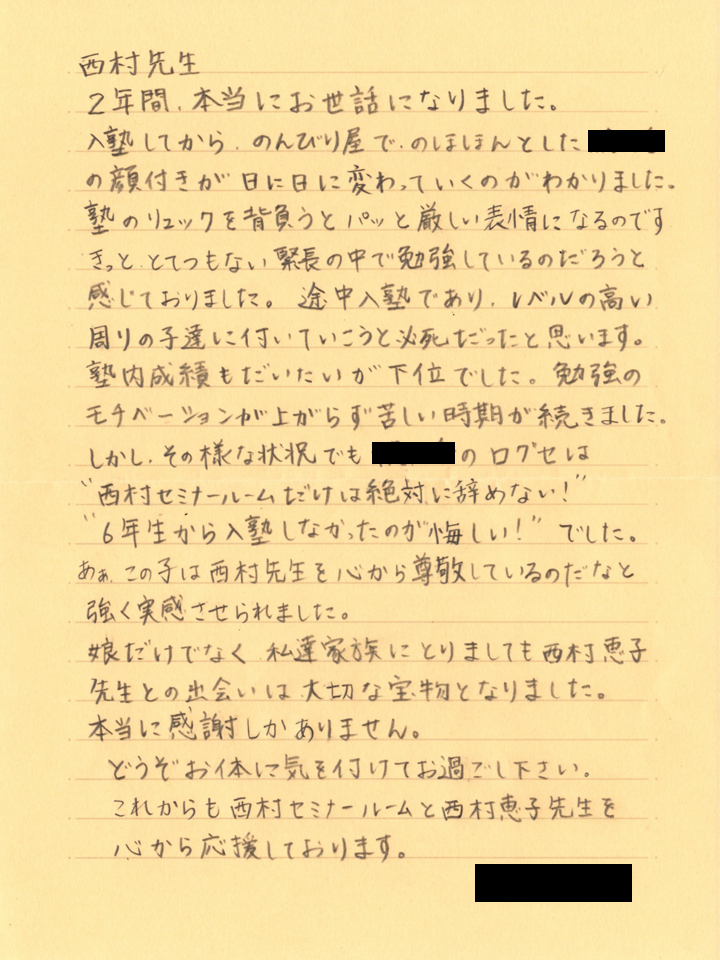 西村先生
2年間、本当にお世話になりました。
入塾してから、のんびり屋で、のほほんとした
の顔付きが日に日に変わっていくのがわかりました。
塾のリュックを背負うとパッと厳しい表情になるのです
きっと、とてつもない緊張の中で勉強しているのだろうと
感じておりました。途中入塾であり、レベルの高い
周りの子達に付いていこうと必死だったと思います。
塾内成績もだいたいが下位でした。勉強の
モチベーションが上がらず苦しい時期が続きました。
しかし、その様な状況でも の口グセは
"西村セミナールームだけは絶対に辞めない!"
"6年生から入塾しなかったのが悔しい!"でした。
あぁ、この子は西村先生を心から尊敬しているのだなと
強く実感させられました。
娘だけでなく 私達家族にとりましても西村恵子
先生との出会いは大切な宝物となりました。
本当に感謝しかありません。
どうぞお体に気を付けてお過ごし下さい。
これからも西村セミナールームと西村恵子先生を
心から応援しております。